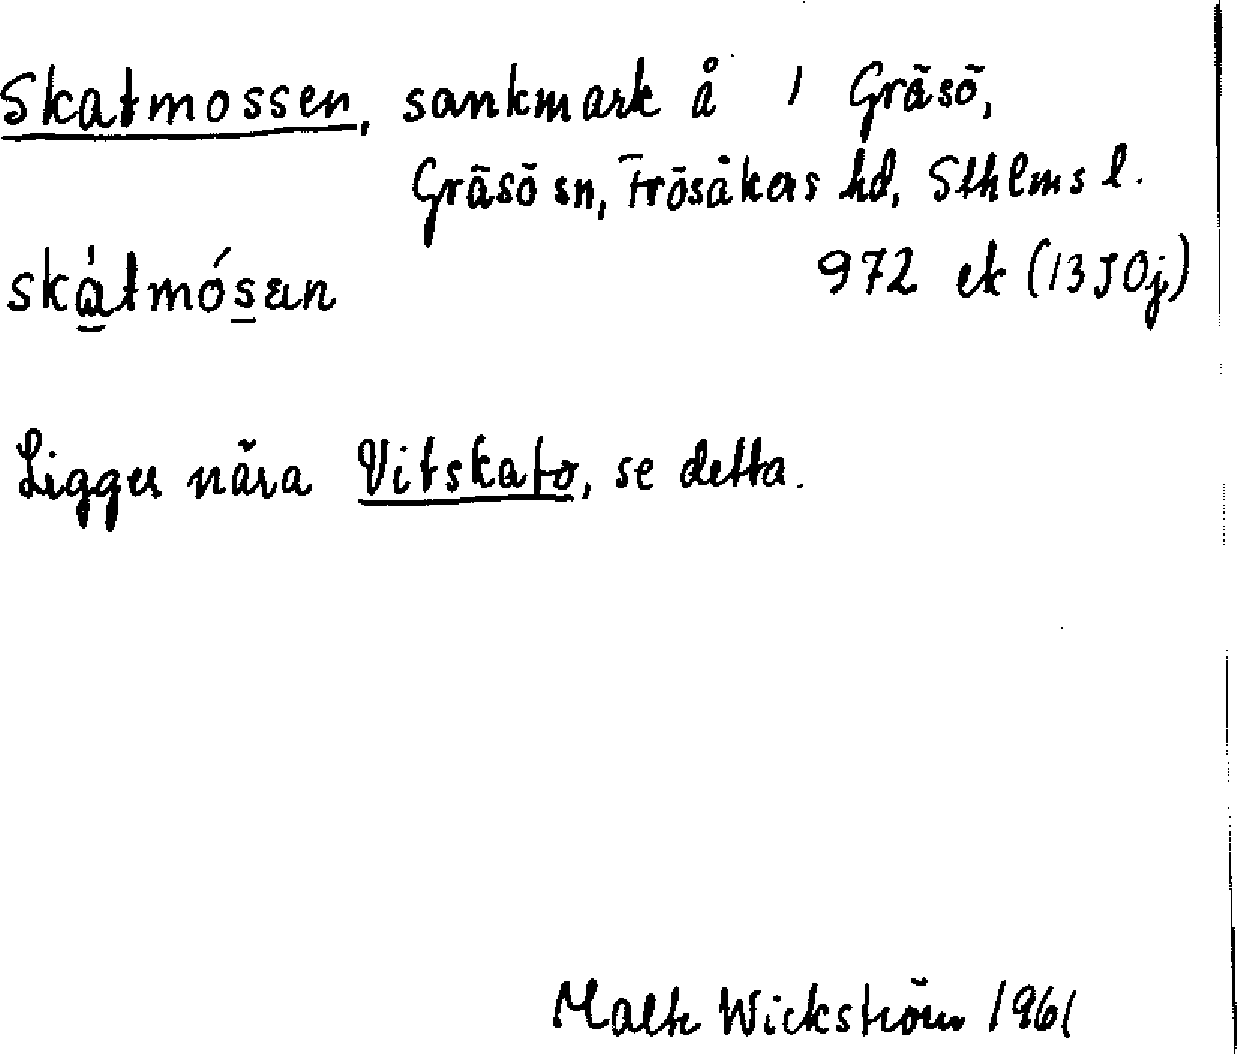 Skatmossen, sankmark å 1 Gräsö,
Gräsö sn, Frösåkers hd, Sthlms l.
skátmósen 972 ek (13J0j)
Ligger nära Vitskato, se detta.
Malte Wickström 1961